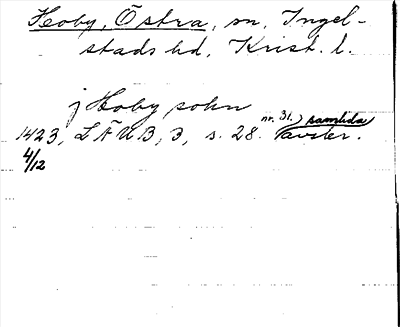 Hoby, Östra, sn, Ingel-
stads hd, Krist. l.
j Hoby sohn
1423, LÄUB, 3, s. 28. nr. 31.) samtida
4/12 avskr.